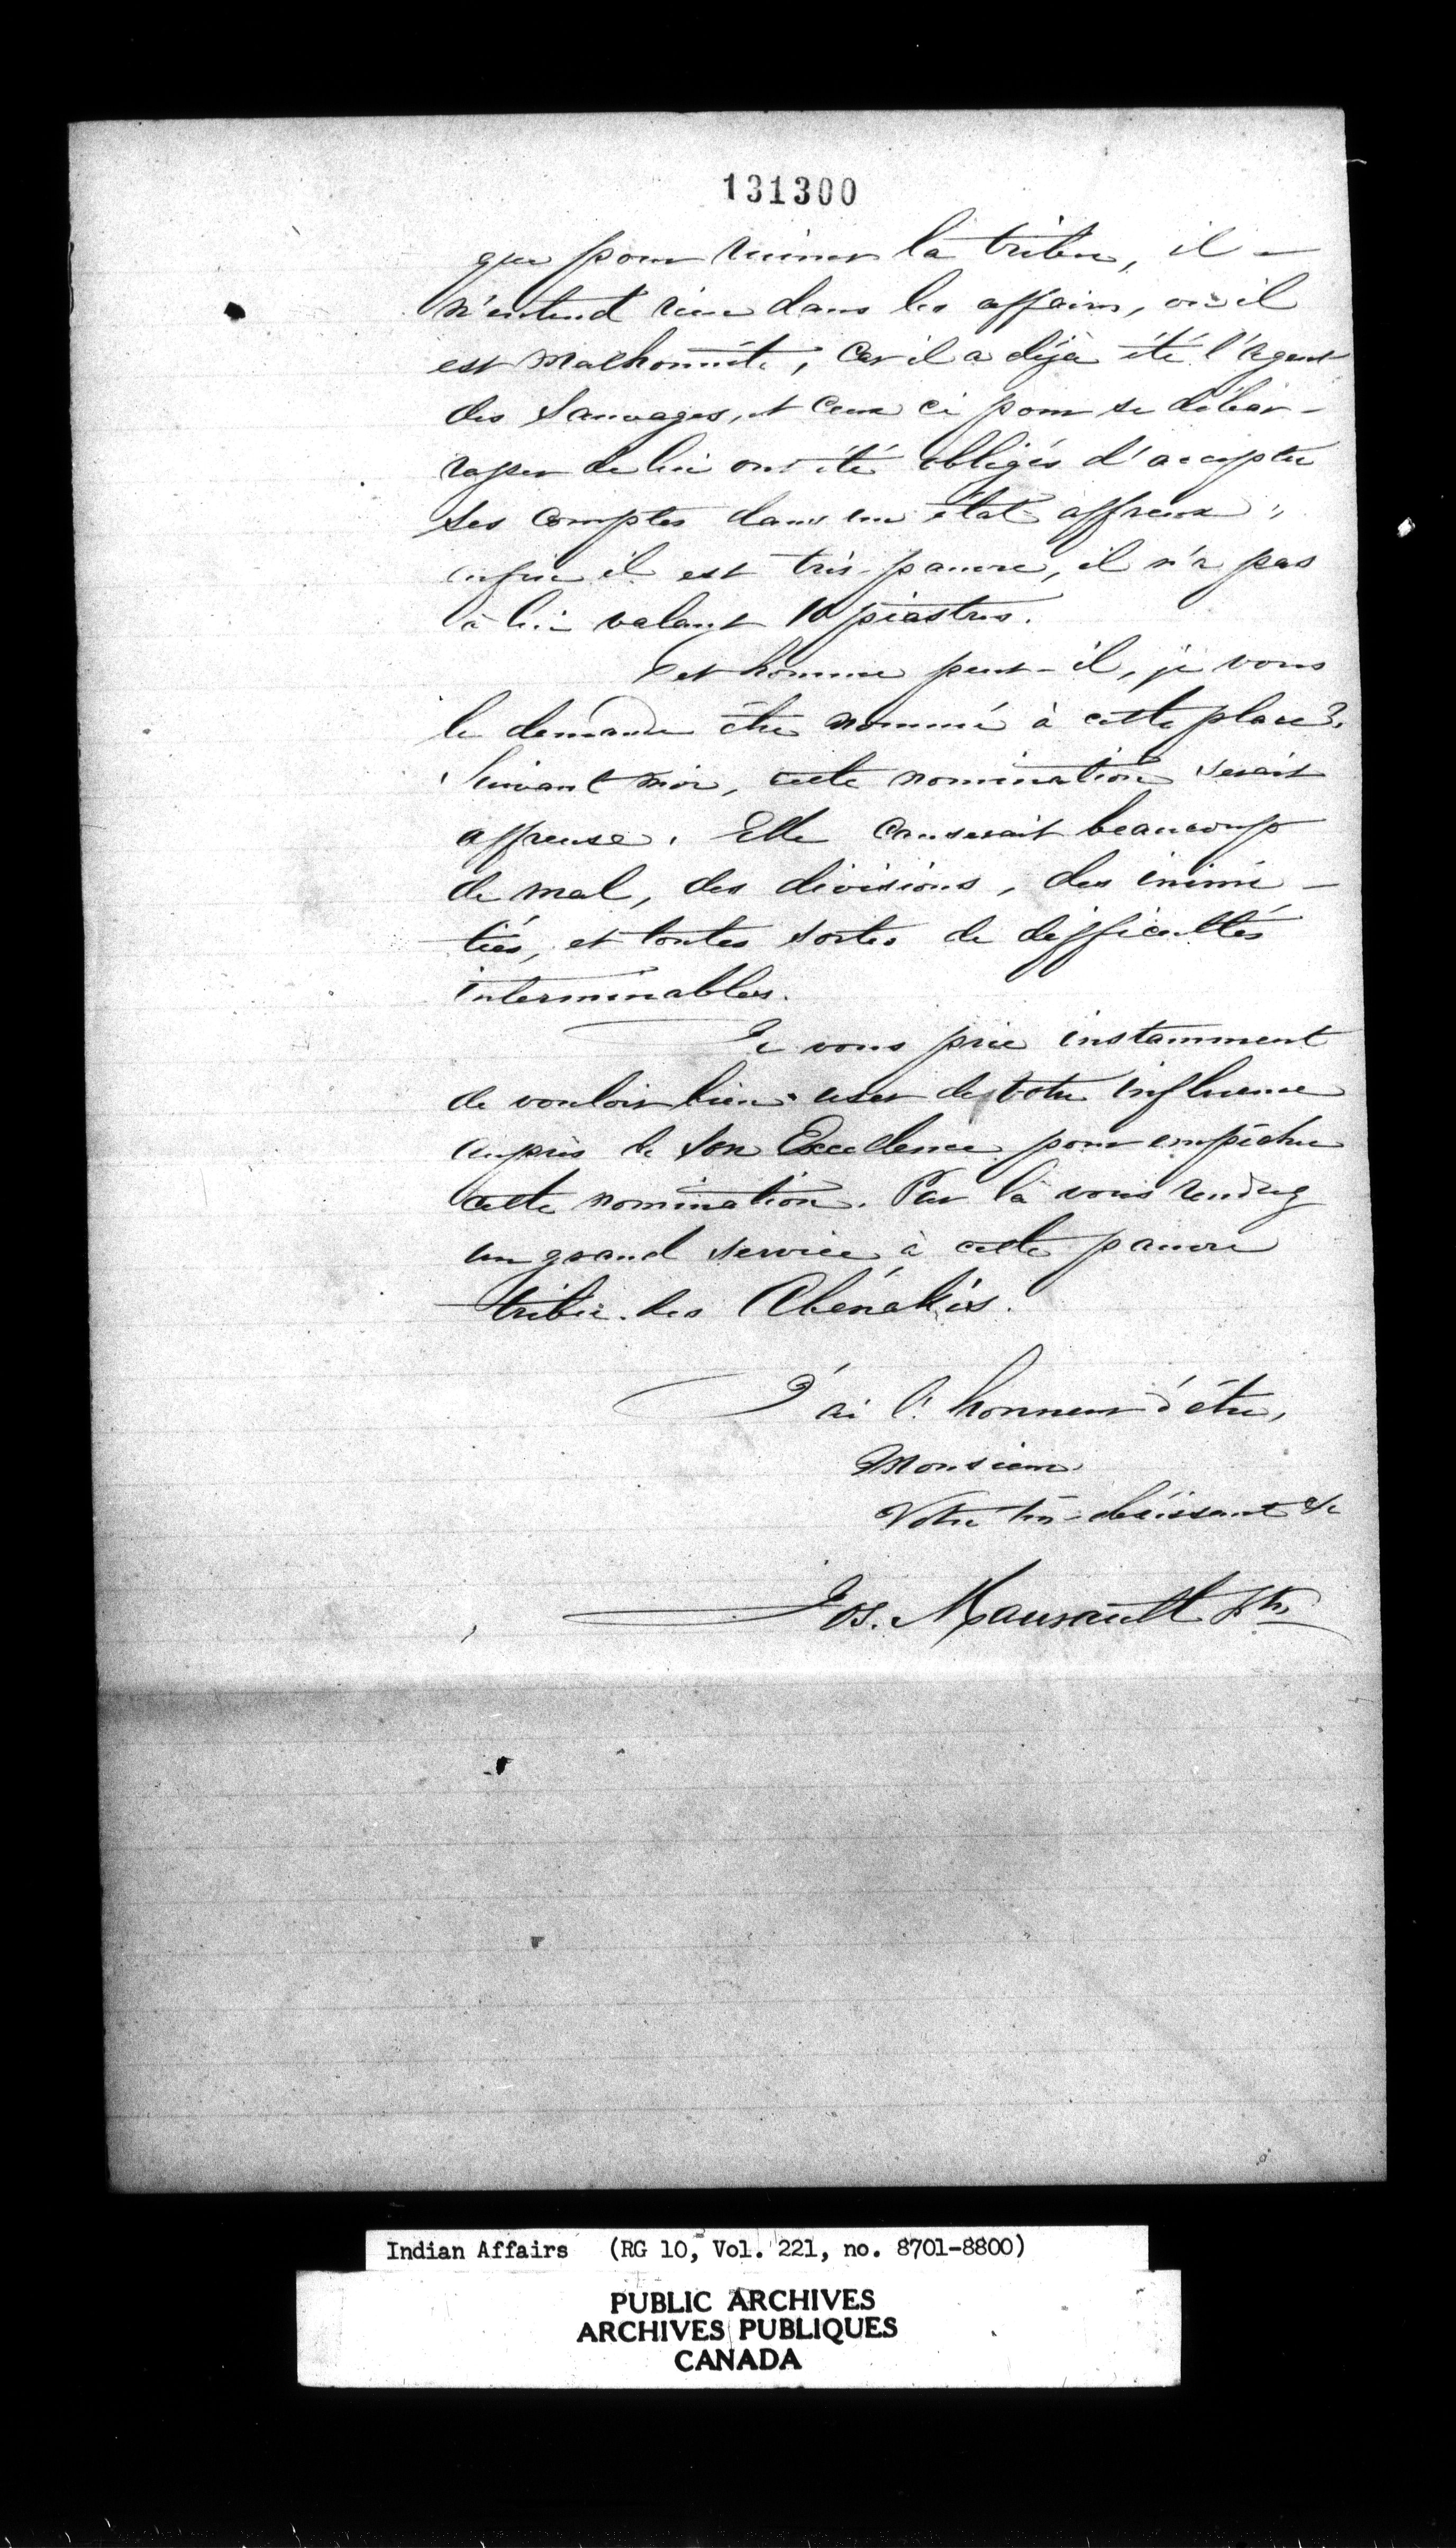 131300
que pour ruiner la tribu, il -
n'entend rien dans les affaires, ou il
est malhonnête, car il a déjà été l'agent
des Sauvages, et ceux ci pour se débar-
rasser de lui ont été obligés d'accepter
ses comptes dans un état affreux ;
enfin il est très-pauvre, il n'a pas
à lui valant 10 piastres.
Cet homme peut-il, je vous
le demande être nommé à cette place?
Suivant moi, cette nomination serait
affreuse. Elle causerait beaucoup
de mal, des divisions, des inimi-
tiés, et toutes sortes de difficultés
interminables.
Je vous prie instamment
de vouloir bien user de votre influence
auprès de Son Excellence pour empêcher
cette nomination. Par là vous rendrez
un grand service à cette pauvre
tribu des Abénakis.
J'ai l'honneur d'être,
Monsieur
Votre très-obéissant &c
Jos. Maurault Ptre
Indian Affairs (RG 10, Vol. 221, no. 8701-8800)
PUBLIC ARCHIVES
ARCHIVES PUBLIQUES
CANADA